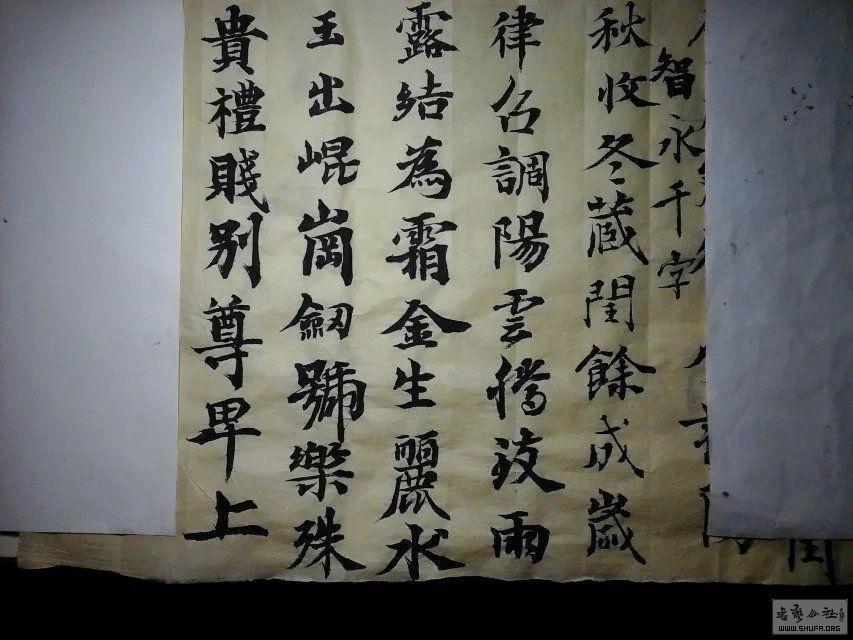 智永千字
秋收冬蔵閏餘成歲
律召調陽雲騰致雨
露結為霜金生麗水
玉出崐崗劒號樂殊
貴禮賤别尊卑上
書藝公社
WWW.SHUFA.ORG